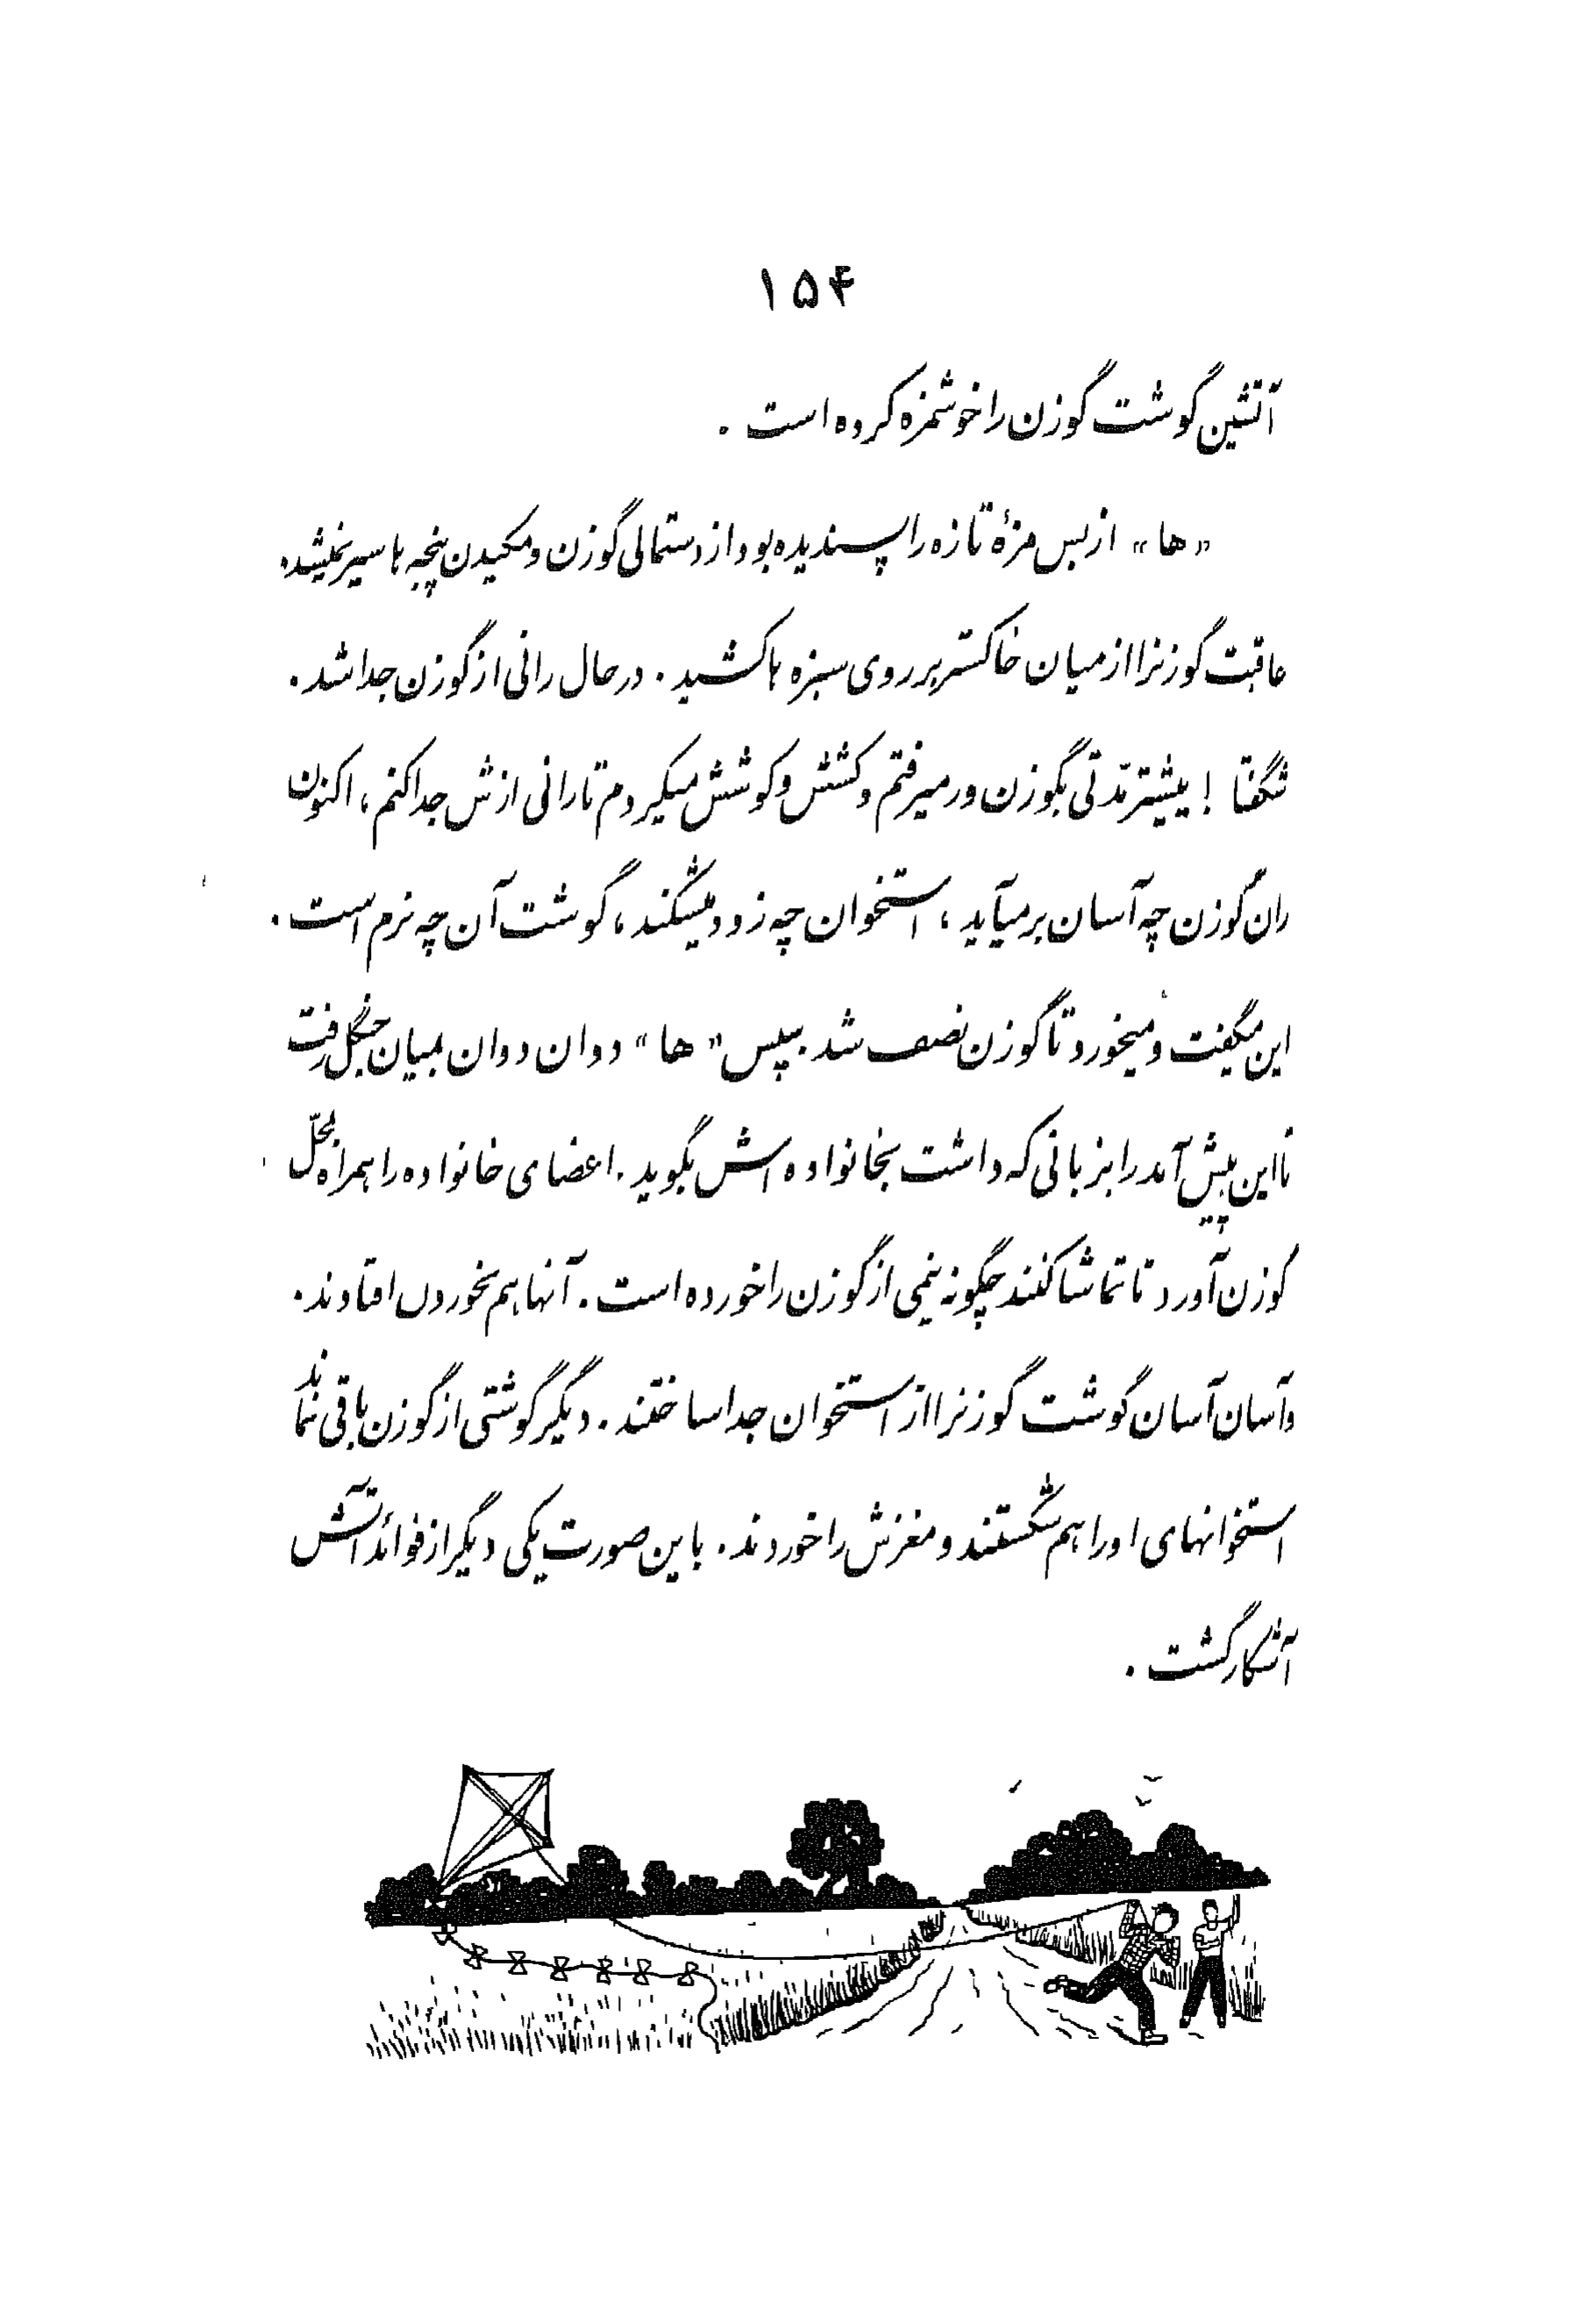 ۱۵۴
آتشین گوشت گوزن را خوشمزه کرده است .
«ها» از بس مزهٔ تازه را پسندیده بود از دستمالی گوزن و مکیدن پنجه ها سیر نمیشد.
عاقبت گوزنرا از میان خاکستر بر روی سبزه ها کشید . در حال رانی از گوزن جدا شد .
شگفتا ! بیشتر مدّتی بگوزن ور میرفتم و کشش و کوشش میکردم تا رانی ازش جدا کنم ، اکنون
ران گوزن چه آسان برمیآید ، استخوان چه زود میشکند ، گوشت آن چه نرم است .
این میگفت و میخورد تا گوزن نصف شد . سپس «ها» دوان دوان بمیان جنگل رفت
تا این پیش آمد را بزبانی که داشت بخانواده اش بگوید . اعضای خانواده را همراه بمحلّ
گوزن آورد تا تماشا کنند چگونه نیمی از گوزن را خورده است . آنها هم بخوردن افتادند .
و آسان آسان گوشت گوزنرا از استخوان جدا ساختند . دیگر گوشتی از گوزن باقی نماند
استخوانهای او را هم شکستند و مغزش را خوردند . باین صورت یکی دیگر از فوائد آتش
آشکار گشت .